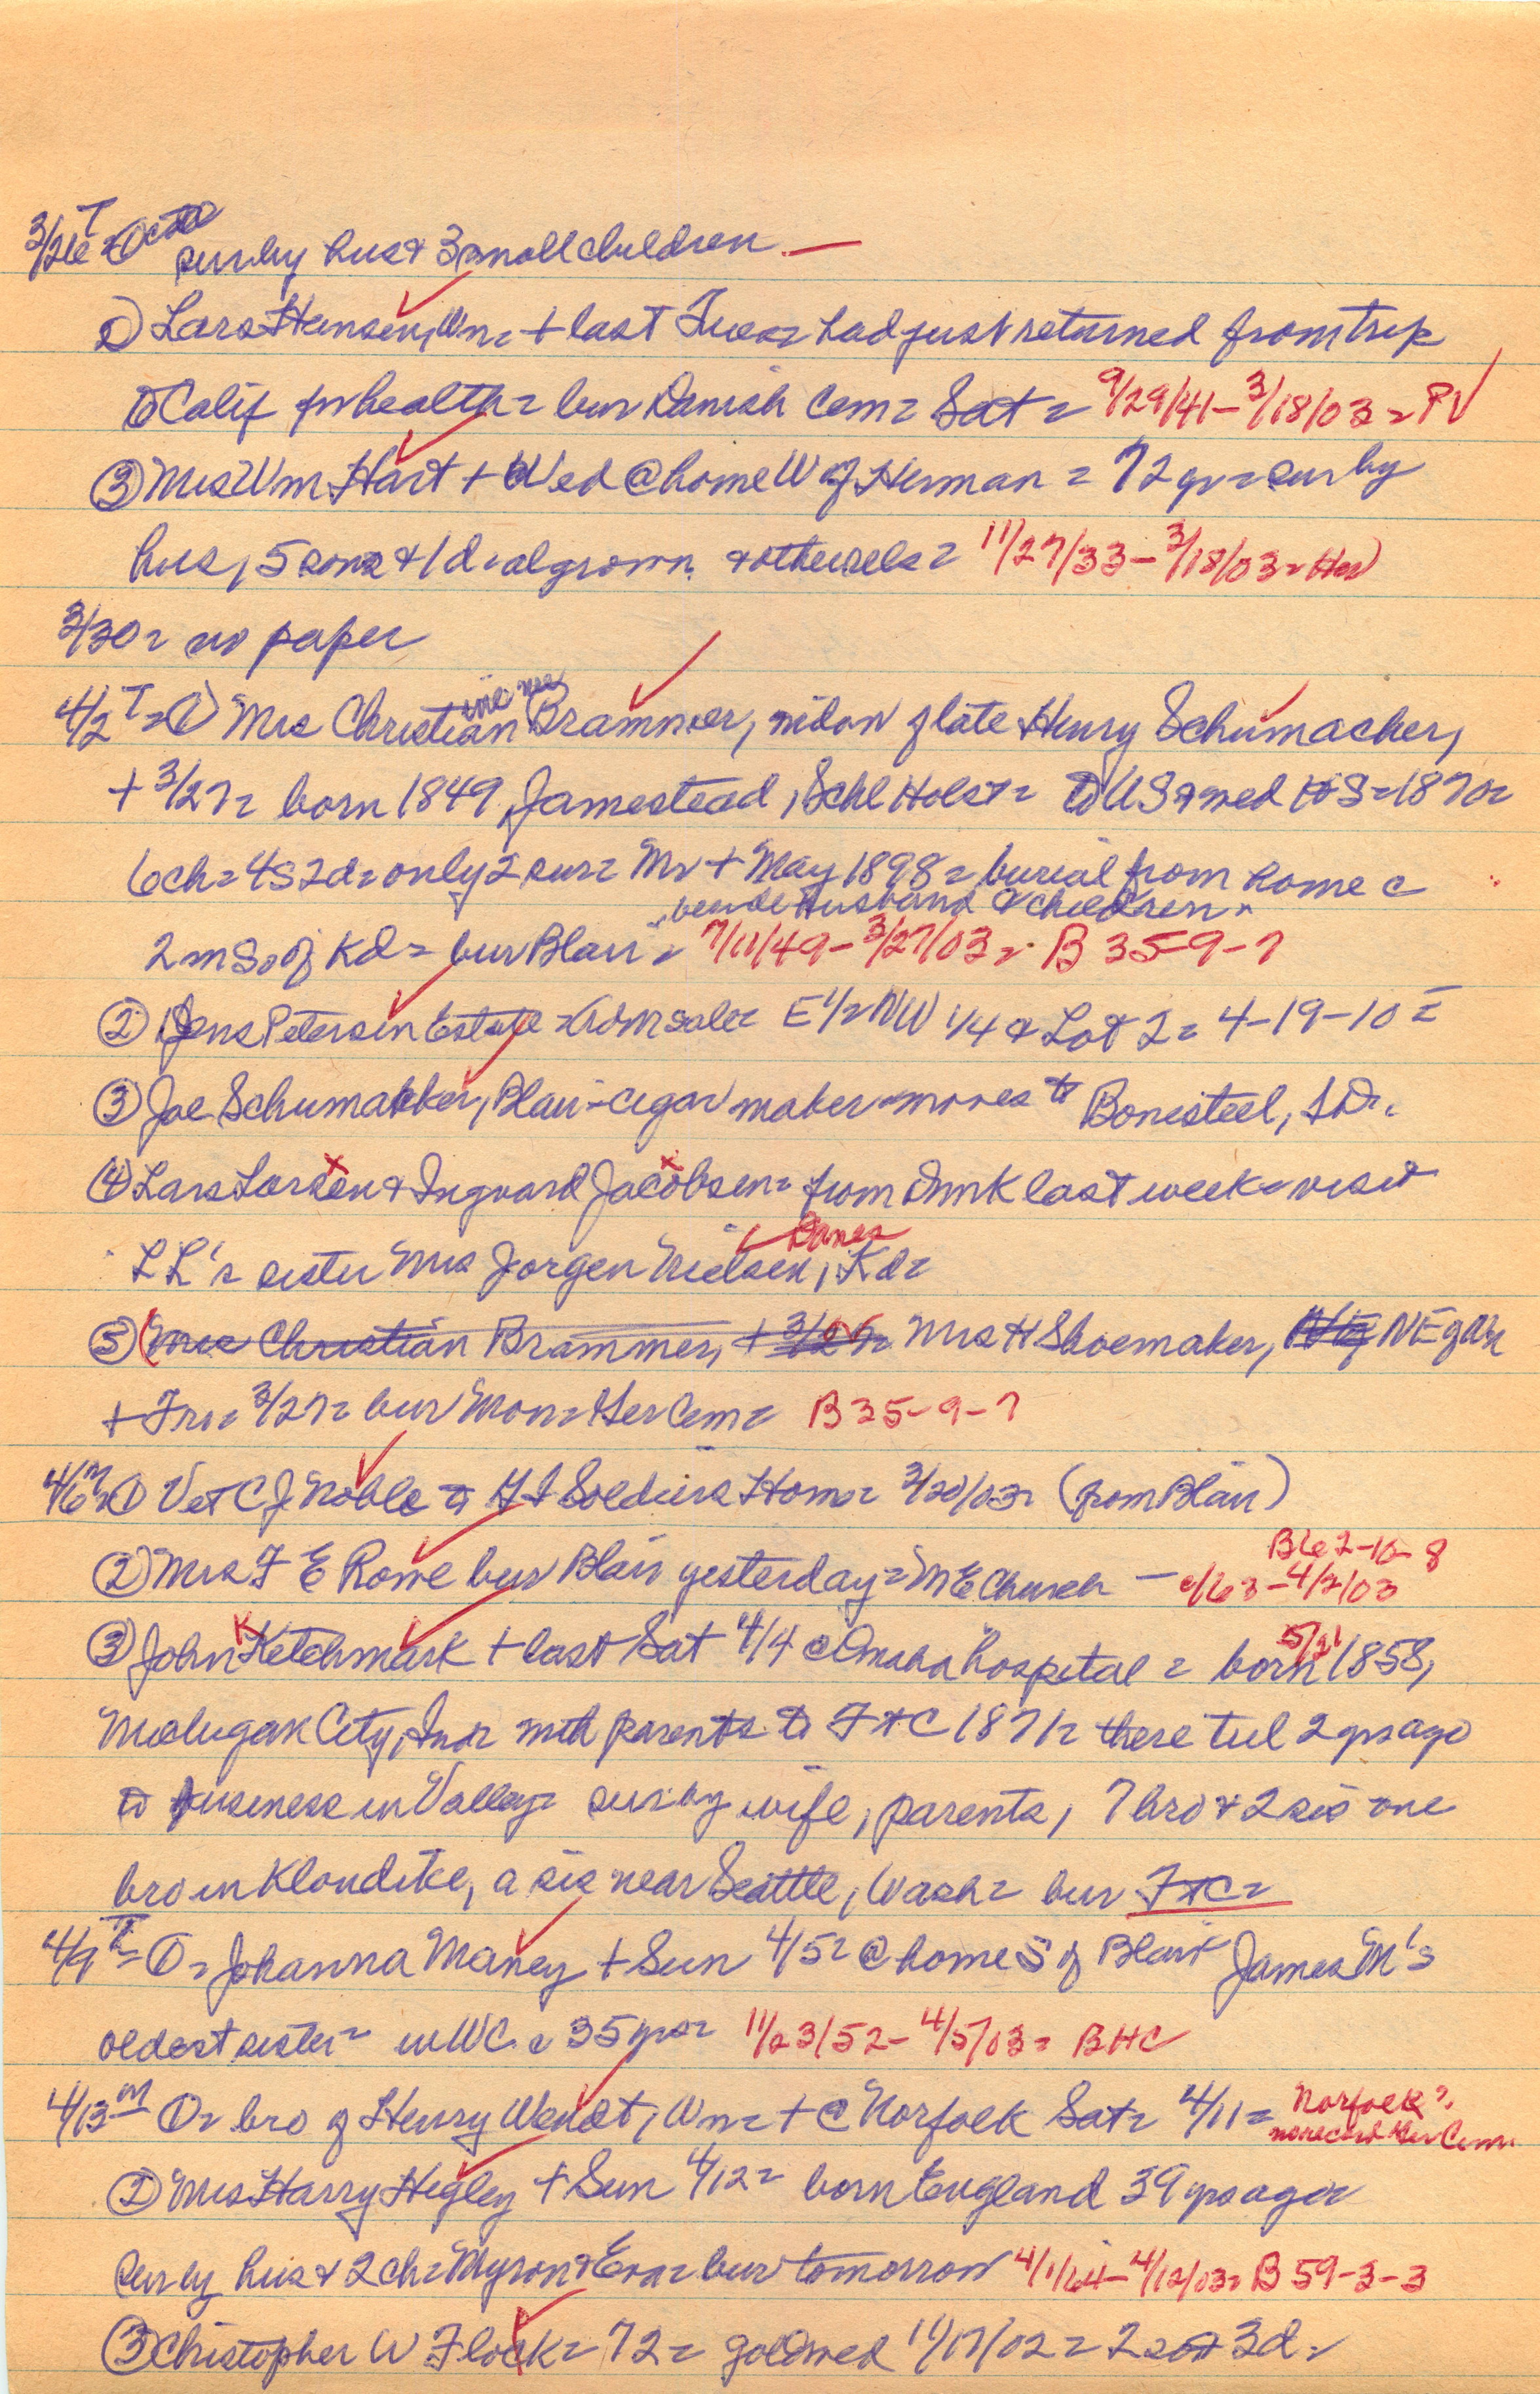 3/26 T = ①
sur by hus & 3 small children —
② Lars Hansen, Wn = + last Tues = had just returned from trip
to Calif for health = bur Danish Cem = Sat = 9/29/41 – 3/18/03 = PV
③ Mrs Wm Hart + Wed @ home W of Herman = 72 yr = sur by
hus, 5 sons & 1 d = al grown & other rels = 11/27/33 – 3/18/03 = Her
3/30 = no paper
ine nee
4/2 T = ① Mrs Christian Brammer, widow of late Henry Schumacher,
+ 3/27 = born 1849 Jamestead, Schl Holst = to US & med HS = 1870 =
6 ch = 4s 2d = only 2 sur = Mr + May 1898 = burial from home c
"beside husband & children"
2 m So of Kd = bur Blair = 7/11/49 – 3/27/03 = B 35-9-7
② Jens Petersen Estate = Adm sale = E 1/2 NW 1/4 & Lot 2 = 4-19-10 =
③ Joe Schumakker, Blair = cigar maker = moves to Bonesteel, SD =
④ Lars Larsen & Ingvard Jacobsen = from Dnmk last week = visit
Danes
LL's sister Mrs Jorgen Nielsen, Kd =
⑤ Mrs Christian Brammer, + 3/27 = Mrs H Shoemaker, NE of Ar
+ Fri = 3/27 = bur Mon = Ger Cem = B 35-9-7
4/6 M = ① Vet C J Noble to G I Soldiers Home = 3/20/03 = (from Blair)
B 62-10-8
② Mrs F E Rowe bur Blair yesterday = M E Church — /63 – 4/2/03
K 5/21
③ John Ketchmark + last Sat 4/4 @ Omaha hospital = born 1858,
Michigan City, Ind = with parents to Ft C 1871 = there til 2 yrs ago
to business in Valley = sur by wife, parents, 7 bro & 2 sis one
bro in Klondike, a sis near Seattle, Wash = bur Ft C =
4/9 T = ① = Johanna Maney + Sun 4/5 = @ home S of Blair James M's
oldest sister = in WC = 35 yrs = 11/23/52 – 4/5/03 = BHC
4/13 M ① = bro of Henry Wendt, Wn = + @ Norfolk Sat = 4/11 = Norfolk?
no record Ger Cem
② Mrs Harry Hegley + Sun 4/12 = born England 39 yrs ago =
sur by hus & 2 ch = Myron & Eva = bur tomorrow 4/1/64 – 4/12/03 = B 59-3-3
③ Christopher W Flock = 72 = gold wed 11/17/02 = 2 s & 3 d =